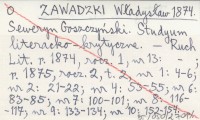 O ZAWADZKI Władysław 1874.
Seweryn Goszczyński. Studyum
literacko-krytyczne. – Ruch
Lit. r 1874, rocz. 1, nr 13: - ;
r. 1875, rocz. 2, t. 2, nr 1: 4-6;
nr 2: 21-22; nr 4: 53-55; nr 6:
83-85; nr 7: 100-101; nr 8: 116-
-117; nr 9: 133-134; nr 10: 152-154